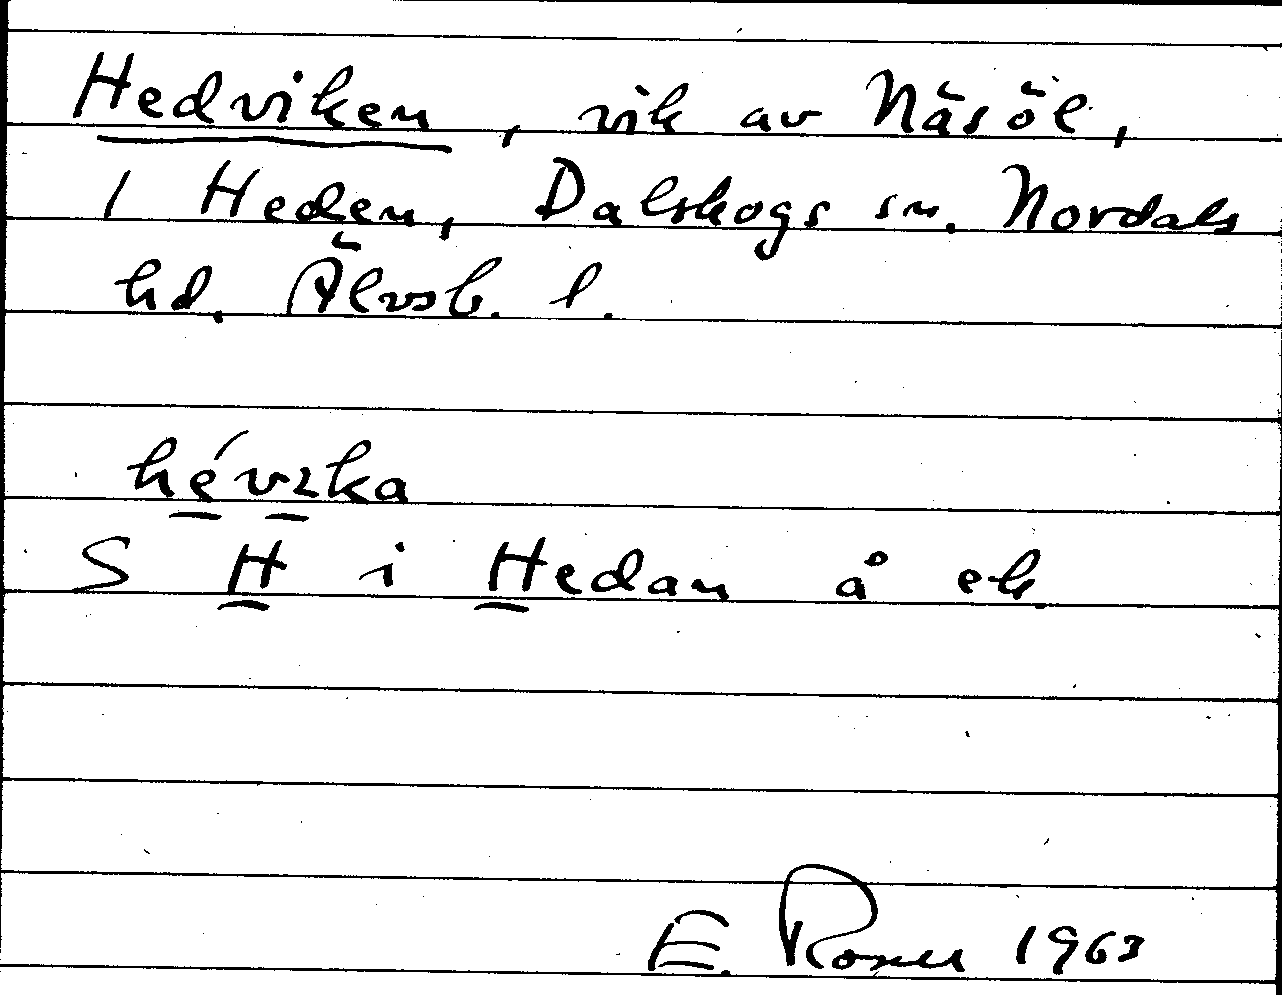 Hedviken, vik av Näsöl,
1 Heden, Dalskogs sn. Nordals
hd. Älvsb. l.
hévzka
S H i Hedan å ek
E. Rosell 1963